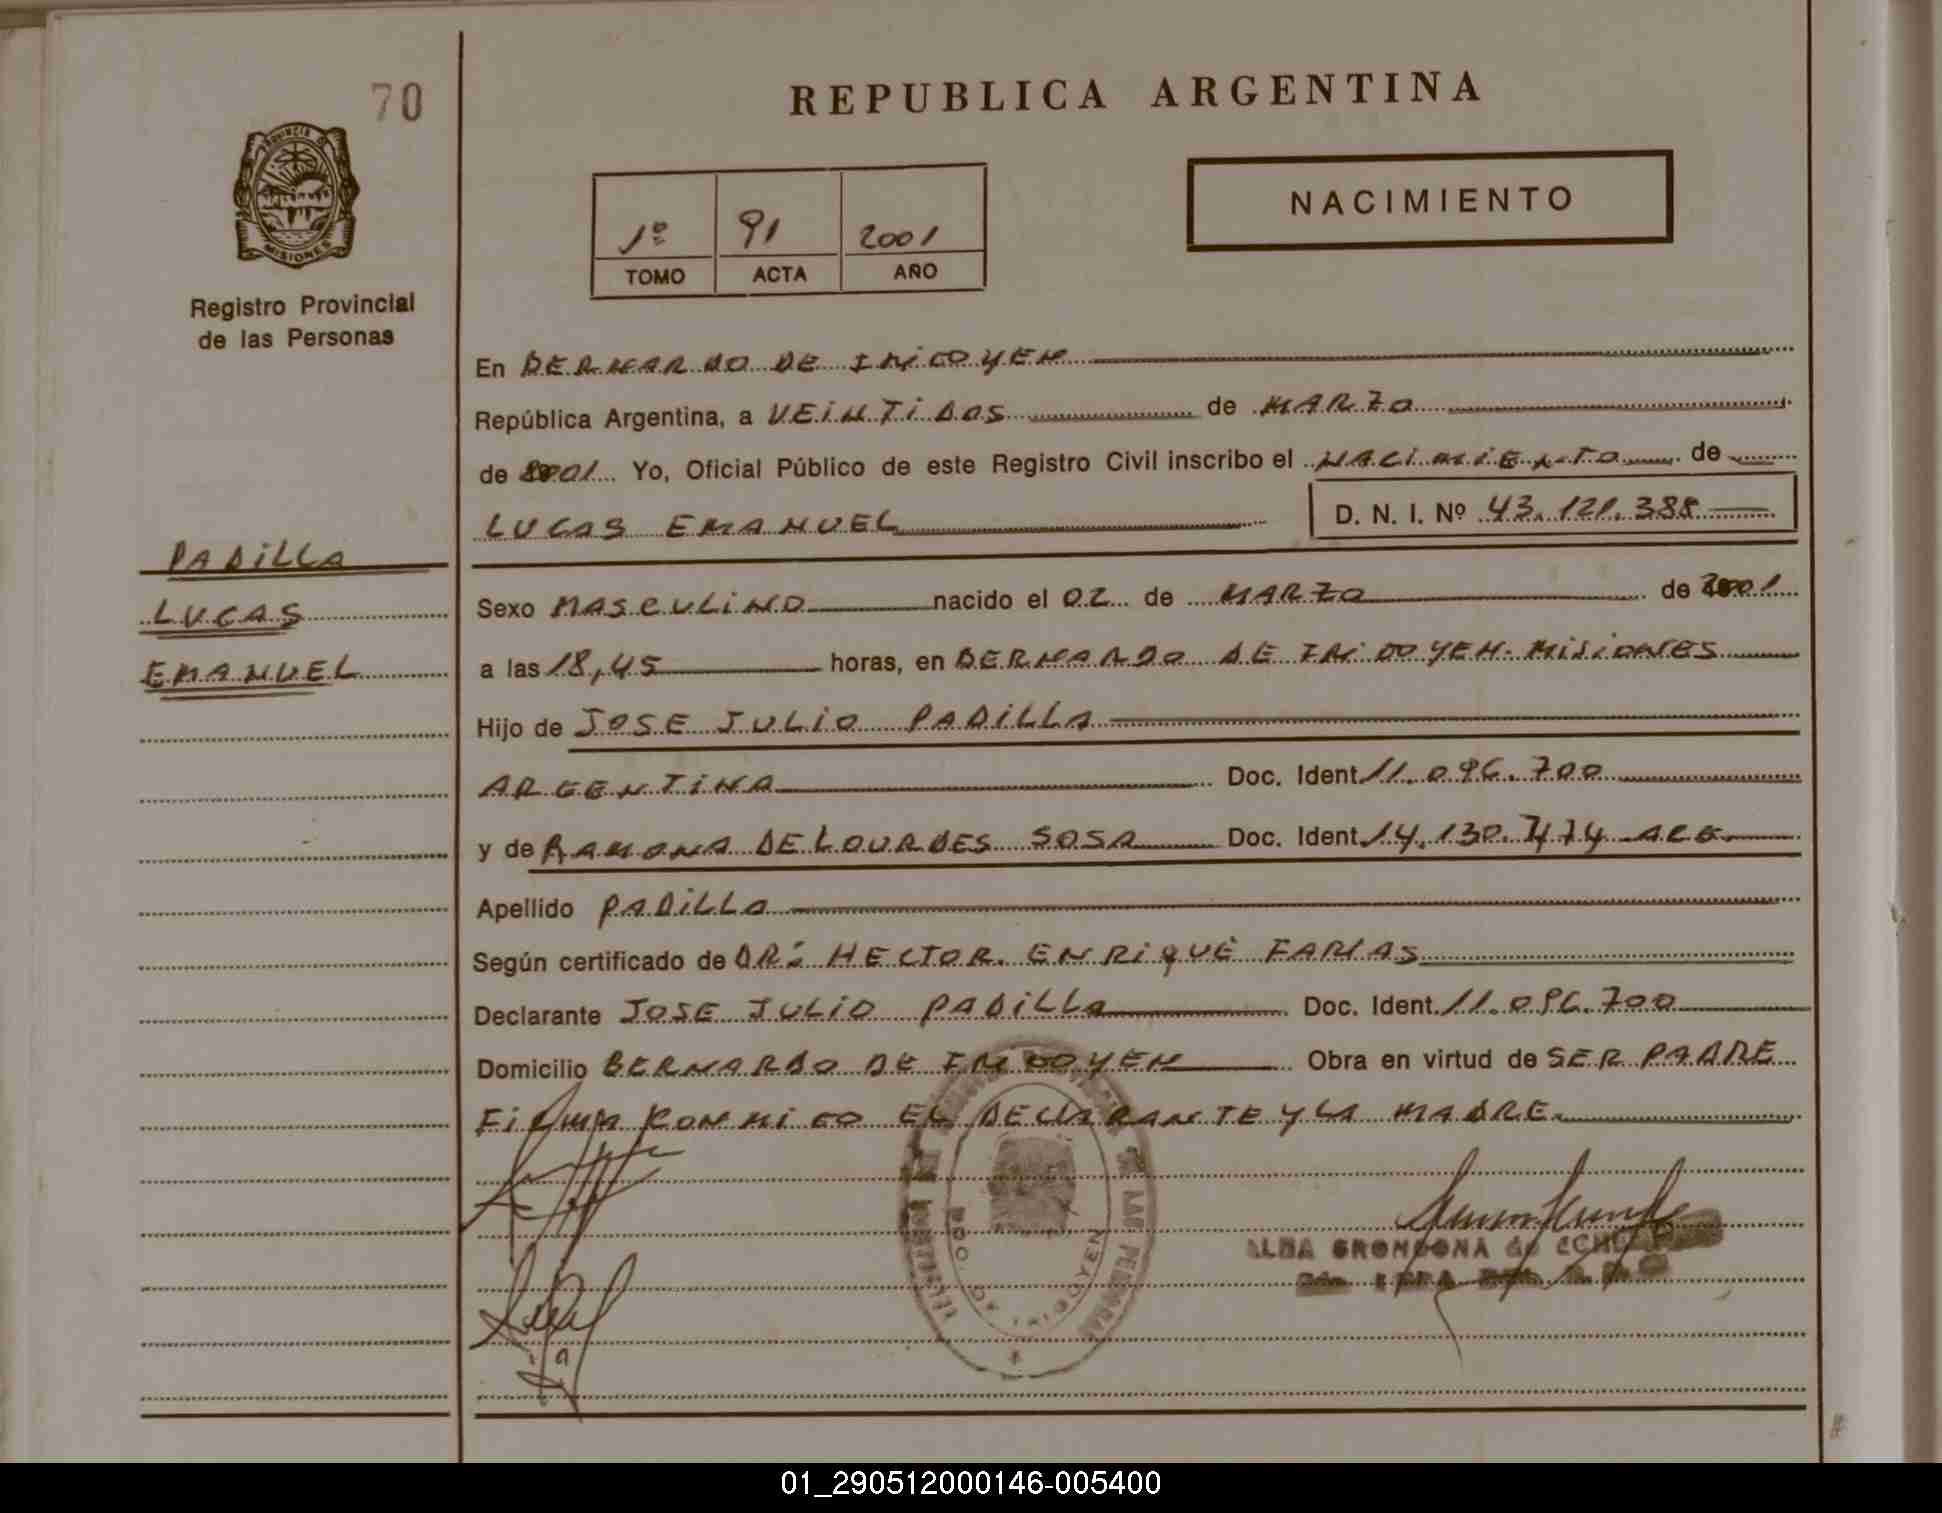 70
REPUBLICA ARGENTINA
NACIMIENTO
1º 91 2001
TOMO ACTA AÑO
PROVINCIA DE
MISIONES
Registro Provincial
de las Personas
En BERNARDO DE IRIGOYEN
República Argentina, a VEINTIDOS de MARZO
de 2001 Yo, Oficial Público de este Registro Civil inscribo el NACIMIENTO de
LUCAS EMANUEL D. N. I. Nº 43.121.388
PADILLA
LUCAS
EMANUEL
Sexo MASCULINO nacido el 02 de MARZO de 2001
a las 18,45 horas, en BERNARDO DE IRIGOYEN-MISIONES
Hijo de JOSE JULIO PADILLA
ARGENTINA Doc. Ident 11.096.700
y de RAMONA DE LOURDES SOSA Doc. Ident 14.130.474 ARG.
Apellido PADILLA
Según certificado de DR: HECTOR ENRIQUE FARIAS
Declarante JOSE JULIO PADILLA Doc. Ident. 11.096.700
Domicilio BERNARDO DE IRIGOYEN Obra en virtud de SER PADRE
FIRMA CONMIGO EL DECLARANTE Y LA MADRE.
DE LAS PERSONAS
BDO. DE IRIGOYEN
ALBA GRONDONA de
01_290512000146-005400